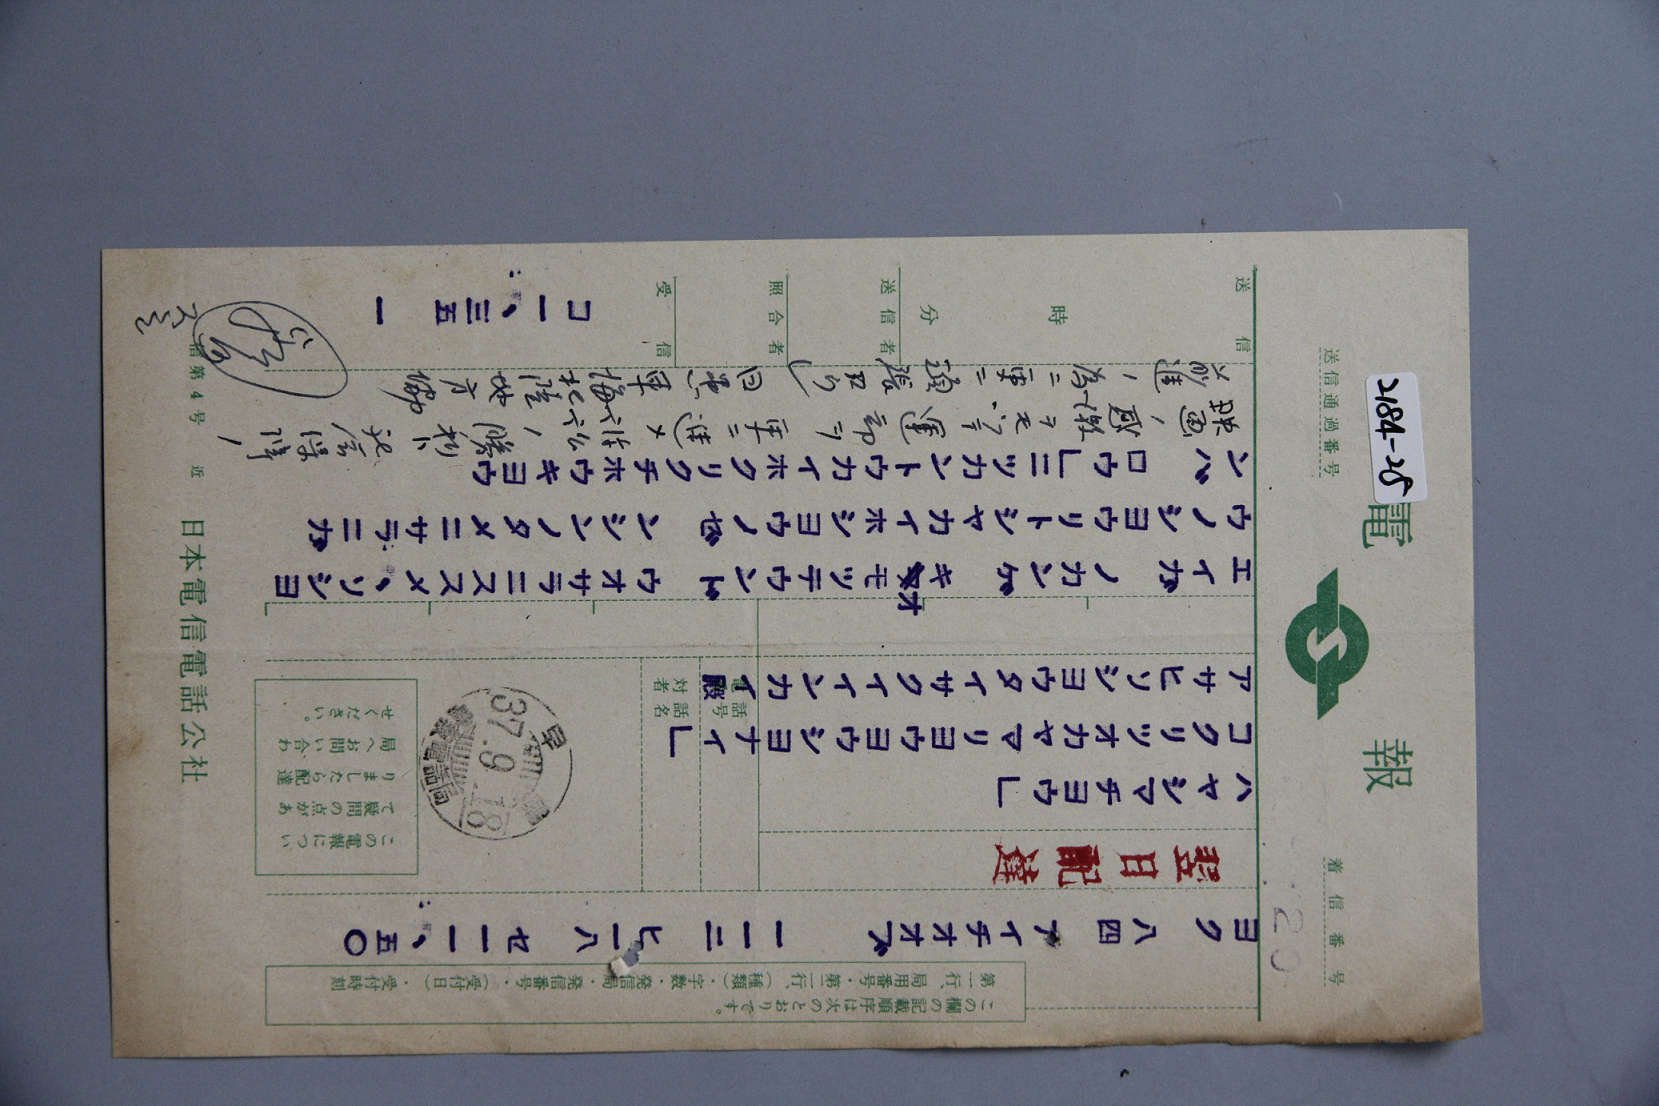 電報
送信通過番号
着信番号
2184-25
第一行、局用番号・第二行（種類）・字数・発信局・発信番号・（受付日）・受付時刻
この欄の記載順序は次のとおりです。
ヨク 八四 アイチオオブ 一一二 ヒ一八 セ一一、五〇
翌日配達
ハヤシマチヨウ」
コクリツオカヤマリヨウヨウシヨナイ」
アサヒソシヨウタイサクイインカイ殿
電話番号
対話者名
エイガ ノカンゲキオモツテウンド ウオサラニススメ、ソシヨ
ウノシヨウリトシヤカイホシヨウノゼ ンシンノタメニサラニガ
ンバ ロウ」ニツカントウカイホクリクチホウキヨウ
映画ノ感激ヲモッテ運動ヲ更ニ進メ訴訟ノ勝利ト社会保障ノ
前進ノ為ニ更ニ頑張ロウ」日患東海北陸地方協
送信
時 分
送信者
照合者
受信
コ一、三五 一
37.9.18
この電報について疑問の点がありましたら配達局へお問い合わせください。
第4号
近
日本電信電話公社